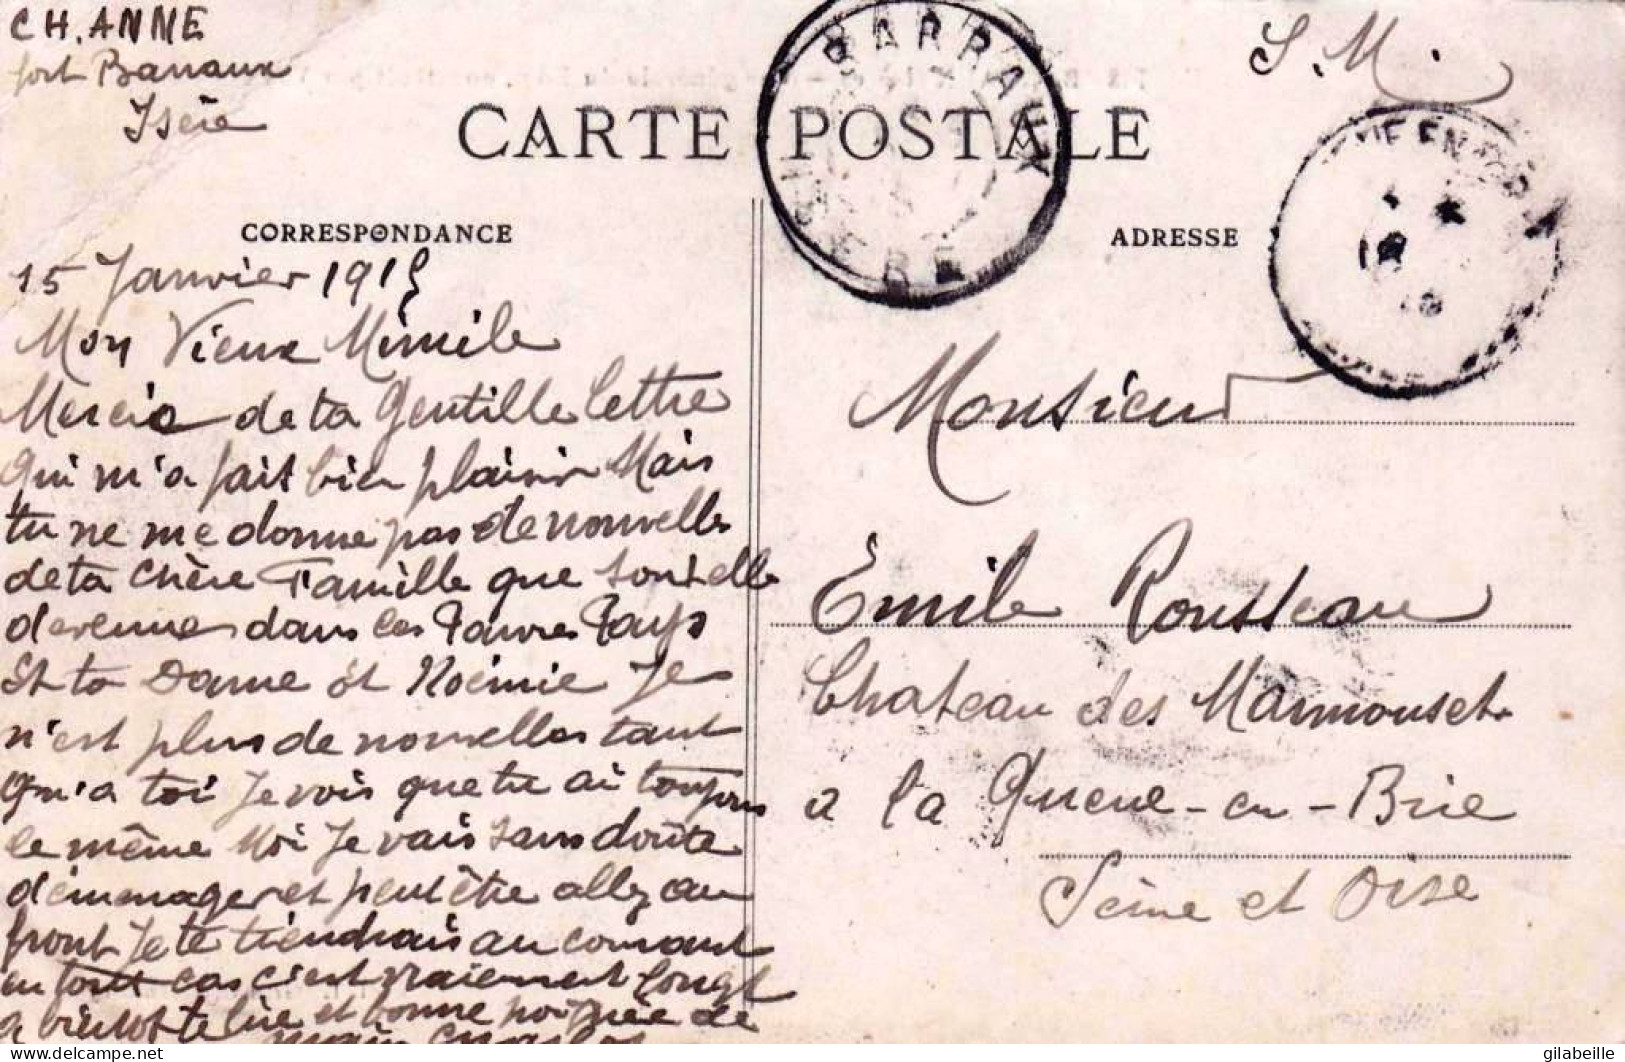 CH. ANNE
fort Barraux
Isère
S. M.
BARRAUX
ISERE
CARTE POSTALE
CORRESPONDANCE
ADRESSE
15 Janvier 1915
Mon Vieux Mimile
Mercie de ta Gentille lettre
Qui m'a fait bien plaisir Mais
tu ne me donne pas de nouvelles
de ta chère Famille que sont elle
devenues dans les Pauvres Pays
Et ta Dame et Noémie Je
n'est plus de nouvelles tant
Qu'a toi Je vois que tu ai toujours
le même Moi Je vais sans doute
démenager et peut être allez au
front Je te tiendrais au courant
en tout cas c'est vraiement long
a bientot te lire et bonne poignée de
main Charles
Monsieur
Emile Rousseau
Chateau des Marmouset
a la Queue-en-Brie
Seine et Oise
gilabeille
delcampe.net